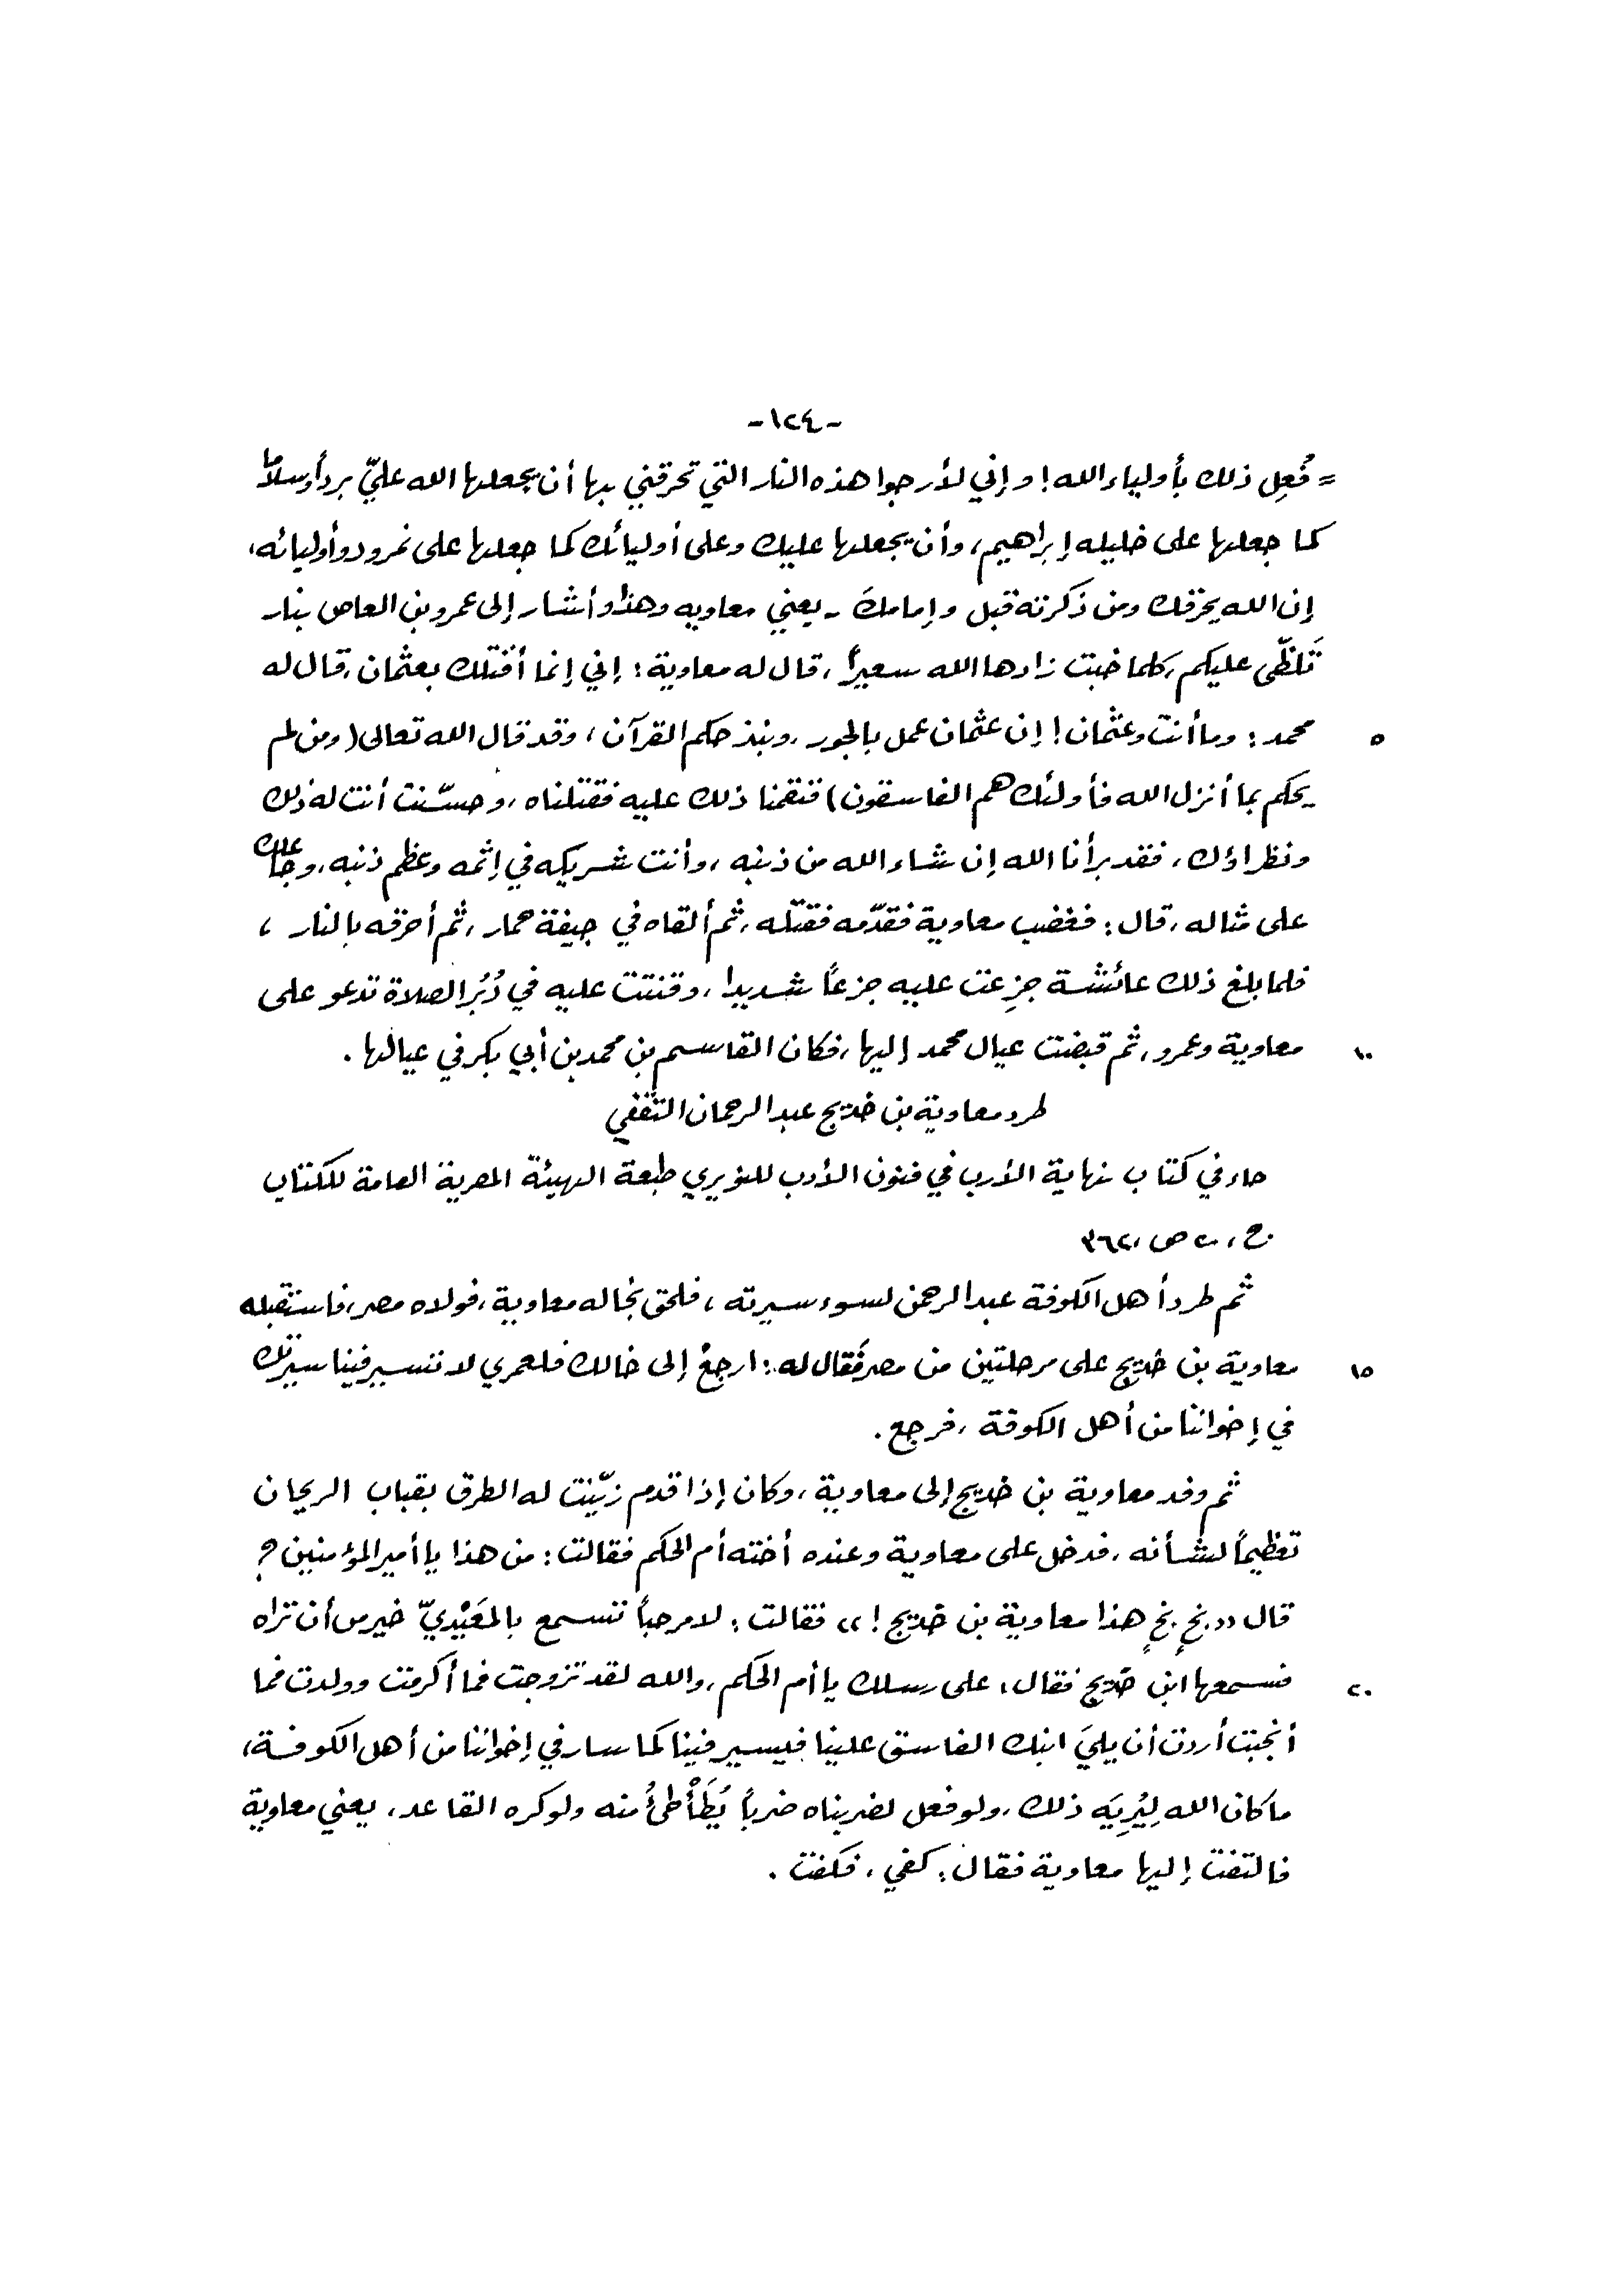 -١٢٤-
= فُعِل ذلك بأولياء الله! وإني لأرجوا هذه النار التي تحرقني بها أن يجعلها الله عليّ برداً وسلاماً
كما جعلها على خليله إبراهيم، وأن يجعلها عليك وعلى أوليائك كما جعلها على نمرود وأوليائه،
إن الله يحرقك ومن ذكرته قبل وإمامك - يعني معاوية وهذا وأشار إلى عمرو بن العاص بنار
تَلظّى عليكم، كلما خبت زادها الله سعيراً، قال له معاوية: إني إنما أقتلك بعثمان، قال له
٥ محمد: وما أنت وعثمان! إن عثمان عمل بالجور، ونبذ حكم القرآن، وقد قال الله تعالى (ومن لم
يحكم بما أنزل الله فأولئك هم الفاسقون) فنقمنا ذلك عليه فقتلناه، وحسّنت أنت له ذلك
ونظراؤك، فقد برأنا الله إن شاء الله من ذنبه، وأنت شريكه في إثمه وعظم ذنبه، وجاعلك
على مثاله، قال: فغضب معاوية فقدّمه فقتله، ثم ألقاه في جيفة حمار، ثم أحرقه بالنار،
فلما بلغ ذلك عائشة جزِعت عليه جزعاً شديدا، وقنتت عليه في دُبُر الصلاة تدعو على
١٠ معاوية وعمرو، ثم قبضت عيال محمد إليها، فكان القاسم بن محمد بن أبي بكر في عيالها.
طرد معاوية بن خديج عبد الرحمان الثقفي
جاء في كتاب نهاية الأرب في فنون الأدب للنويري طبعة الهيئة المصرية العامة للكتاب
ج، ٢٠ ص، ٣٦٢
ثم طرد أهل الكوفة عبد الرحمن لسوء سيرته، فلحق بخاله معاوية، فولاه مصر، فاستقبله
١٥ معاوية بن خديج على مرحلتين من مصر فَقال له: ارجعْ إلى خالك فلعمري لا تسير فينا سيرتك
في إخواننا من أهل الكوفة، فرجع.
ثم وفد معاوية بن خديج إلى معاوية، وكان إذا قدم زيّنت له الطرق بقباب الريحان
تعظيماً لشأنه، فدخل على معاوية وعنده أخته أم الحكم فقالت: من هذا يا أمير المؤمنين؟
قال «بخٍ بخٍ هذا معاوية بن خديج!» فقالت: لا مرحباً تسمع بالمعَيْديّ خير من أن تراه
٢٠ فسمعها ابن خديج فقال: على رسلك يا أم الحكم، والله لقد تزوجت فما أكرمت وولدت فما
أنجبت أردت أن يليَ ابنك الفاسق علينا فيسير فينا كما سار في إخواننا من أهل الكوفة،
ما كان الله لِيُرِيَه ذلك، ولو فعل لضربناه ضرباً يُطَأْطِئُ منه ولو كره القاعد، يعني معاوية
فالتفت إليها معاوية فقال: كفي، فكفت.